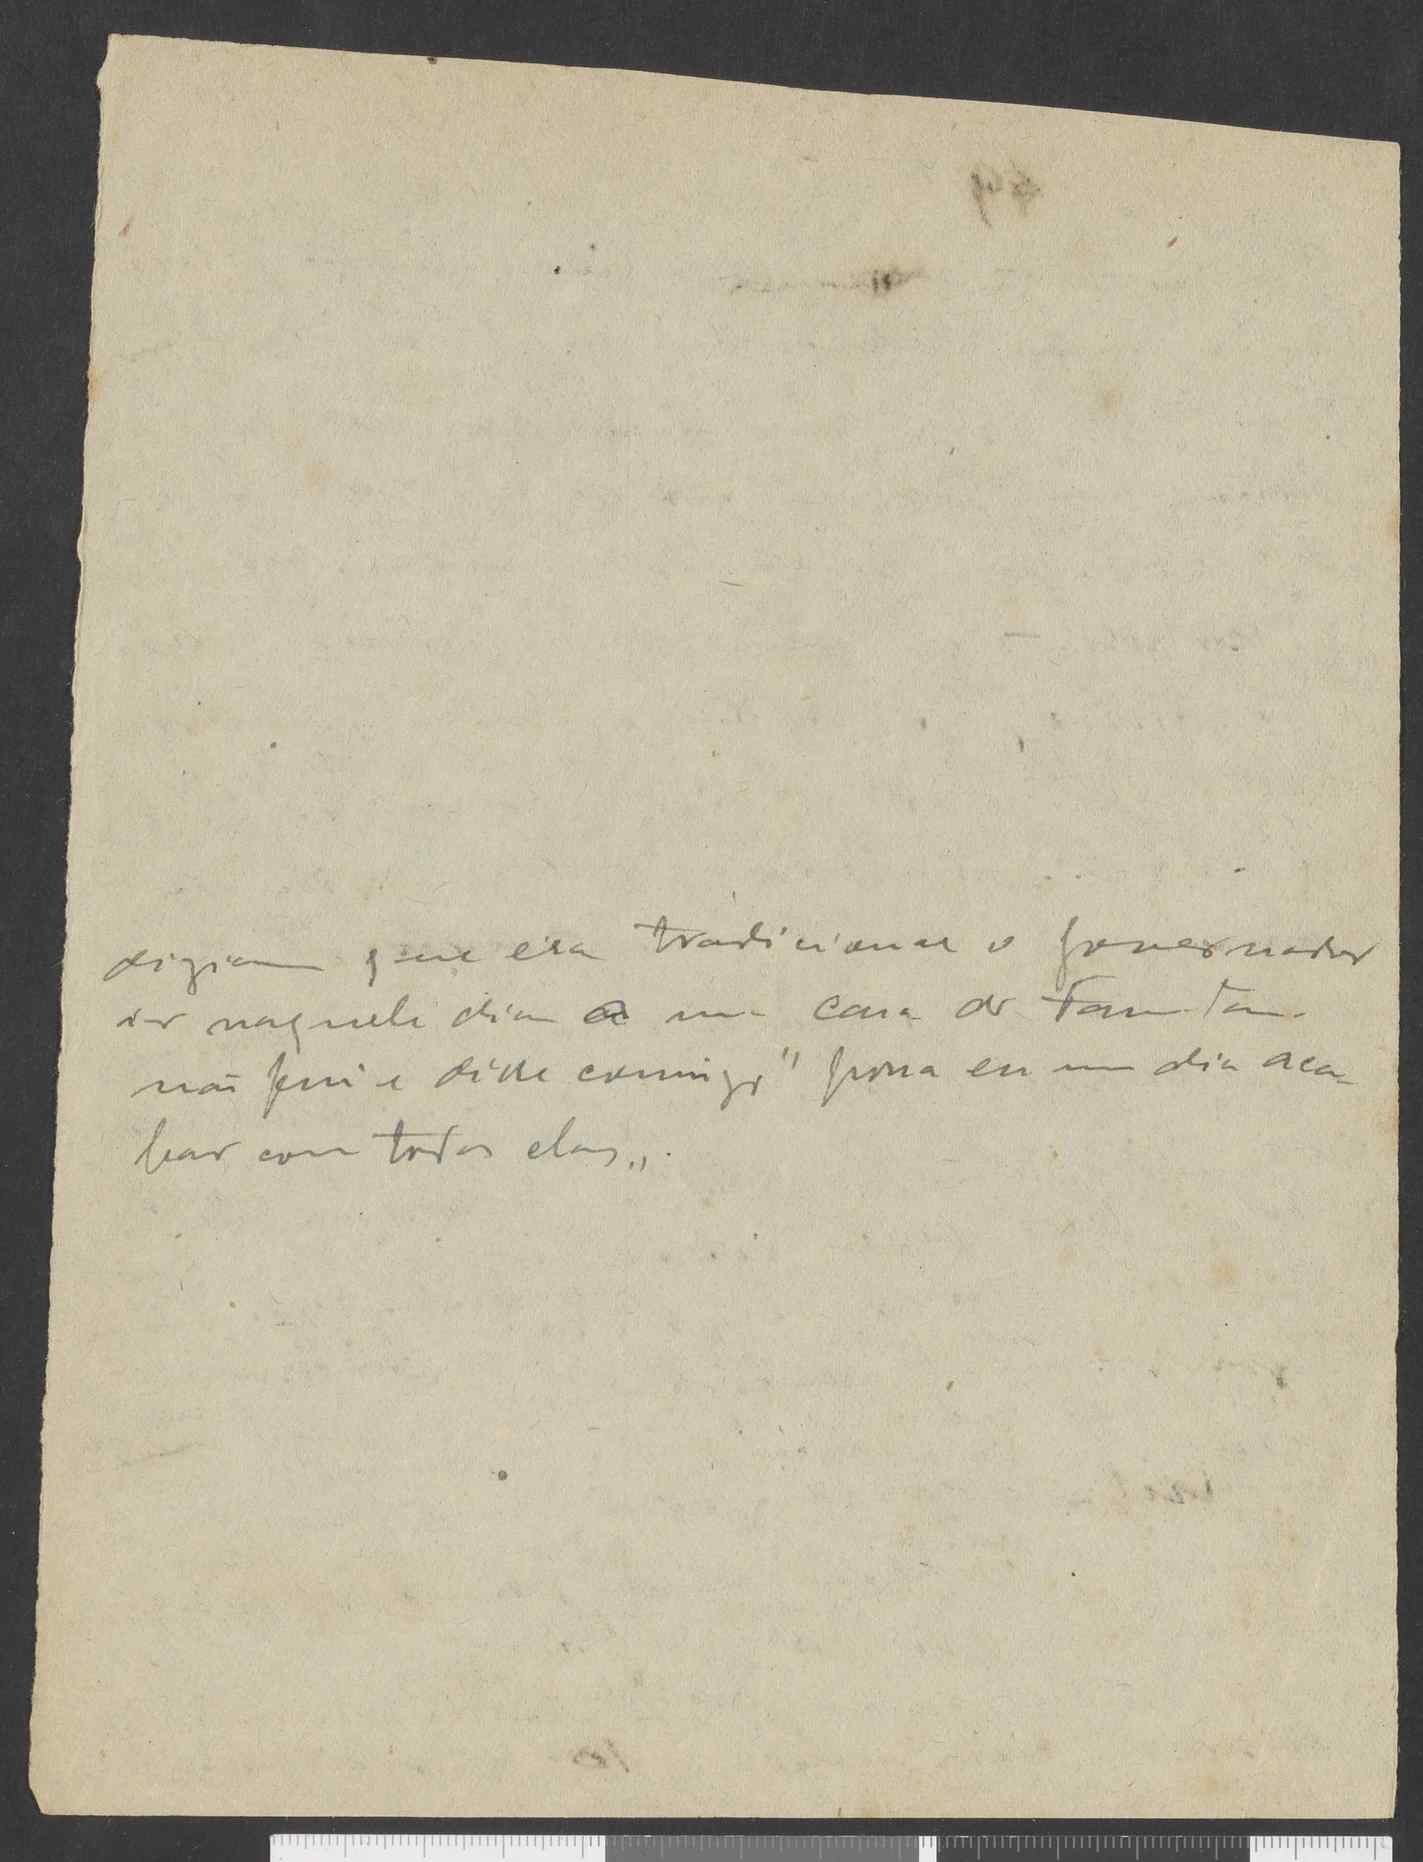 diziam que era tradicional o governador
ir naquele dia a uma casa de Fantan.
não fui e disse comigo "possa eu um dia aca-
bar com todas elas".